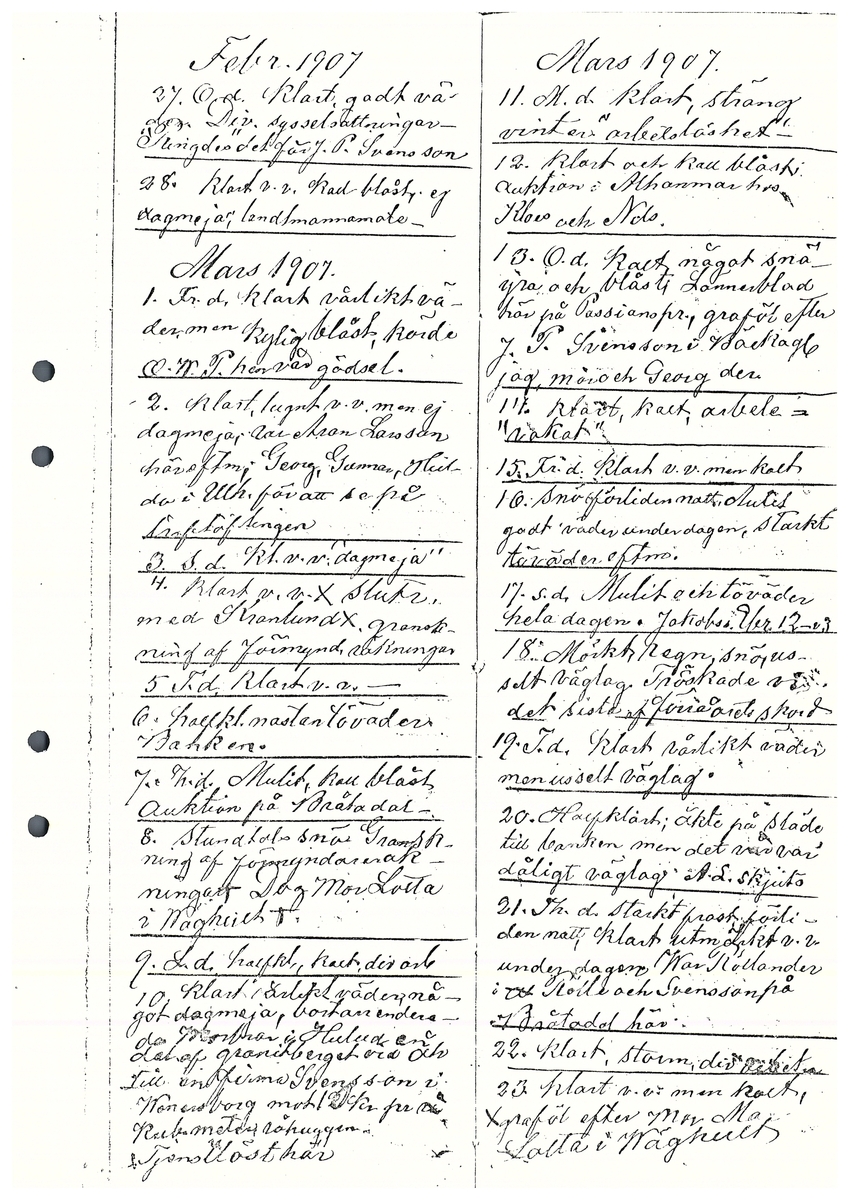 Febr. 1907
27. O. d. Klart, godt vä-
der. Div. sysselsättningar
"Ringdes" det för J. P. Svensson
28. Klart v. v. kall blåst, ej
dagmeja, landtmannamöte
Mars 1907.
1. Fr. d. Klart vårlikt vä-
der, men kylig blåst, körde
O. W. P. hem vår gödsel.
2. Klart, lugnt v. v. men ej
dagmeja; var Aron Larsson
här eftm; Georg, Gunnar, Hul-
da i Ulh. för att se på

3. S. d. Kl. v. v. "dagmeja"
4. Klart v. v. X slutl.
med Kranlund X, gransk-
ning af Förmynd. räkningar
5 T. d. Klart v. v. —
6. halfkl. nästan töväder
Banken.
7. Th. d. Mulit, kall blåst
Auktion på Bråtadal
8. Stundtals snö Gransk-
ning af förmyndareräk-
ningar Dog Mor Lotta
i Wäghult †.
9. L. d. halfkl, kalt, div arb
10. Klart vårlikt väder, nå-
got dagmeja, bortarrendera-
de
del af granitberget
till en firma Svensson i
Wenersborg mot 2 kr pr
Kub. meter råhuggen.

Mars 1907.
11. M. d. Klart, sträng
vinter "arbetslöshet"
12. Klart och kall blåst;
auktion i Alhammar hos
Klaes och Nds.
13. O. d. Kalt, något snö-
yra, och blåst; Lönnerblad
här på Passionspr., graföl efter
J. P. Svensson i Bäckagb
jag, mor och Georg der.
14. Klart, kalt, arbete =
"vakat"
15. Fr. d. Klart v. v. men kalt
16. Snö förliden natt. Mulit
godt väder under dagen, starkt
töväder eftm.
17. S. d. Mulit och töväder
hela dagen. Jakobs. Ebr. 12-v3
18. Mörkt, Regn, snö, us-
selt väglag. Tröskade vi
det sista af förra årets skörd
19. T. d. Klart vårlikt väder
men usselt väglag.
20. Halfklart; åkte på släde
till banken men det var
dåligt väglag. A. L. skjuts
21. Th. d. starkt frost förli-
den natt, klart utmärkt v. v.
under dagen. War Rollander
i Rölle och Svensson på
Bråtadal här.
22. Klart, storm, div arbete
23. Klart v. v. men kalt,
X graföl efter Mor Ma
Lotta i Wäghult